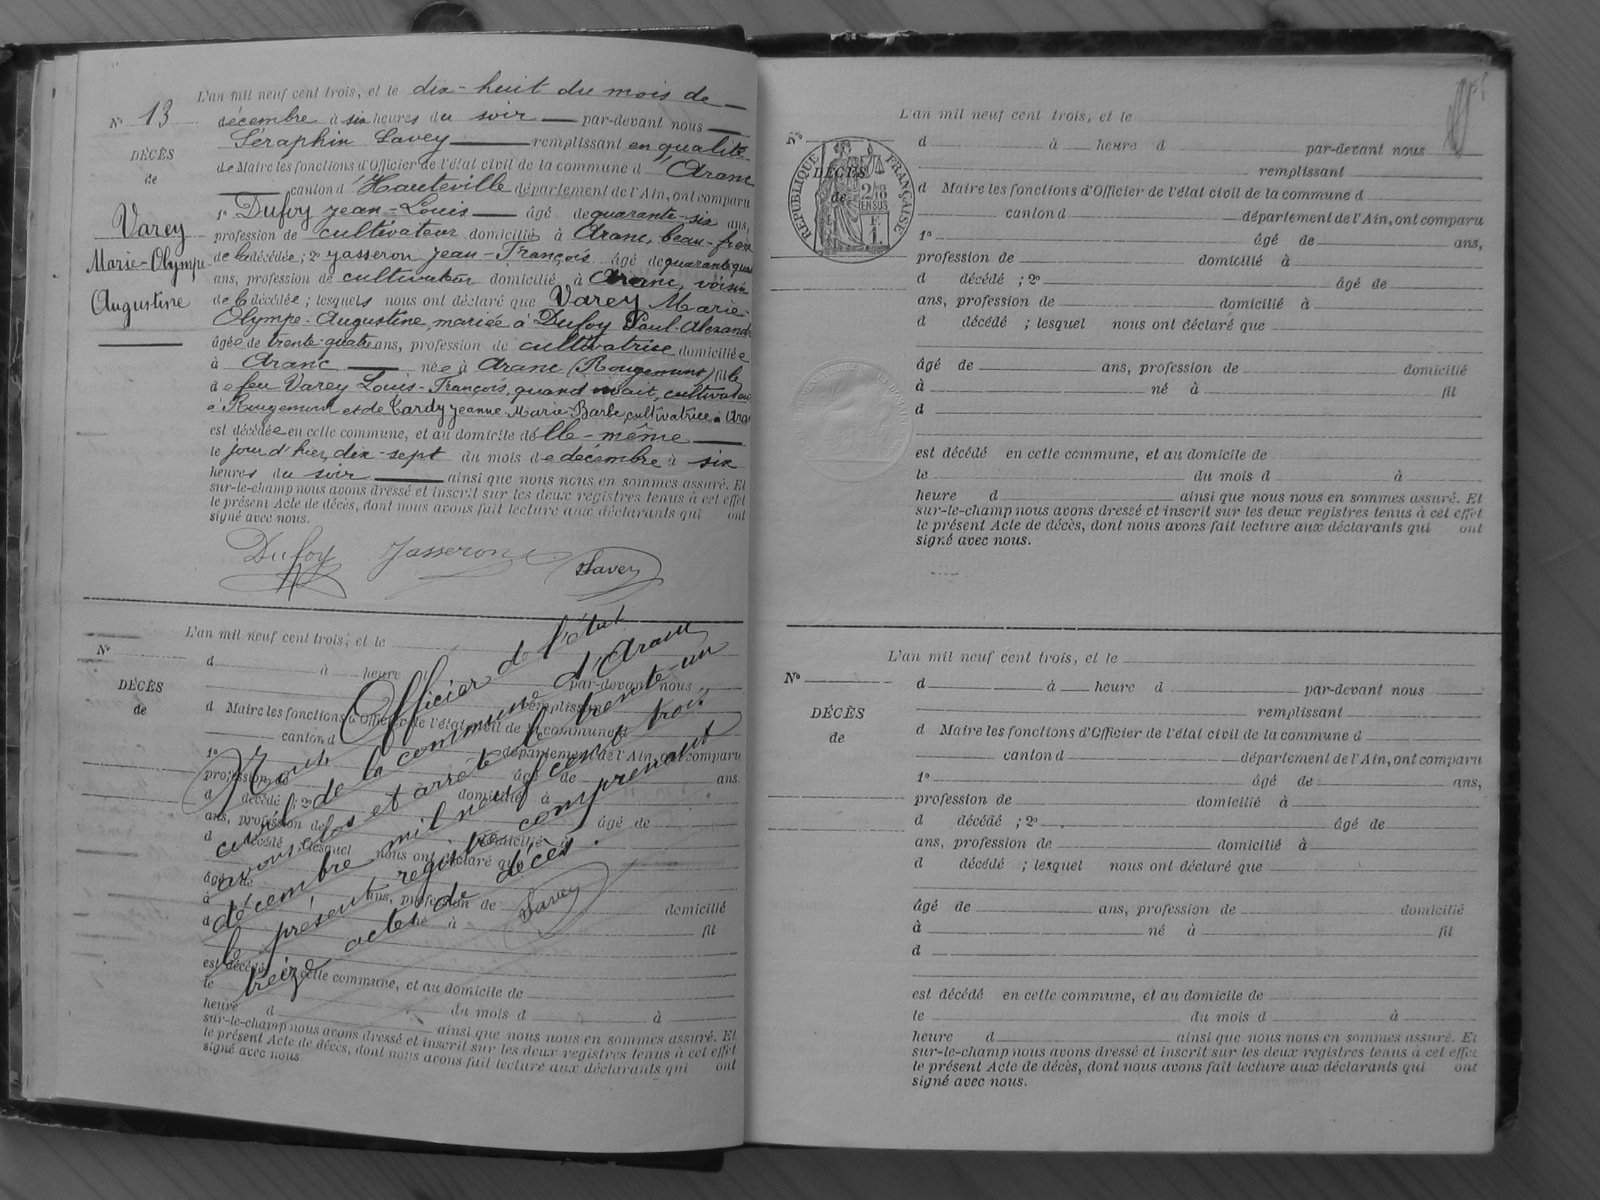 L'an mil neuf cent trois, et le dix-huit du mois de
N° 13
décembre à six heures du soir par-devant nous
Séraphin Savey remplissant en qualité
DÉCÈS
de Maire les fonctions d'Officier de l'état civil de la commune d'Aranc
de
canton d'Hauteville département de l'Ain, ont comparu
1° Dufoy Jean-Louis âgé de quarante-six ans,
Varey
profession de cultivateur domicilié à Aranc, beau-frère
Marie-Olympe
de la décédée ; 2° Jasseron Jean-François âgé de quarante
Augustine
ans, profession de cultivateur domicilié à Aranc, voisin
de la décédée ; lesquels nous ont déclaré que Varey Marie-
Olympe-Augustine, mariée à Dufoy Paul-Alexandre
âgée de trente-quatre ans, profession de cultivatrice domiciliée
à Aranc née à Aranc (Rougemont) fille
de feu Varey Louis-François, quand vivait, cultivateur
à Rougemont et de Tardy Jeanne-Marie-Barbe, cultivatrice à Aranc
est décédée en cette commune, et au domicile d'elle-même
le jour d'hier, dix-sept du mois de décembre à six
heures du soir ainsi que nous nous en sommes assuré. Et
sur-le-champ nous avons dressé et inscrit sur les deux registres tenus à cet effet
le présent Acte de décès, dont nous avons fait lecture aux déclarants qui ont
signé avec nous.
Dufoy Jasseron Savey
L'an mil neuf cent trois, et le
N°
d à heure par-devant nous
DÉCÈS
remplissant
de
d Maire les fonctions d'Officier de l'état civil de la commune d
canton d département de l'Ain, ont comparu
1° âgé de ans,
profession domicilié à
d décédé ; 2° âgé de
ans, profession de domicilié à
d décédé ; lesquel nous ont déclaré que
âgé de ans, profession de domicilié
à né à fil
d
est décédé en cette commune, et au domicile de
le du mois d à
heure d ainsi que nous nous en sommes assuré. Et
sur-le-champ nous avons dressé et inscrit sur les deux registres tenus à cet effet
le présent Acte de décès, dont nous avons fait lecture aux déclarants qui ont
signé avec nous.
Nous Officier de l'état
civil de la commune d'Aranc
avons clos et arrêté le trente-un
décembre mil neuf cent trois
le présent registre comprenant
treize actes de décès.
Savey
L'an mil neuf cent trois, et le
N°
d à heure d par-devant nous
RÉPUBLIQUE FRANÇAISE
DÉCÈS
remplissant
de
d Maire les fonctions d'Officier de l'état civil de la commune d
canton d département de l'Ain, ont comparu
1° âgé de ans,
profession de domicilié à
d décédé ; 2° âgé de
ans, profession de domicilié à
d décédé ; lesquel nous ont déclaré que
âgé de ans, profession de domicilié
à né à fil
d
est décédé en cette commune, et au domicile de
le du mois d à
heure d ainsi que nous nous en sommes assuré. Et
sur-le-champ nous avons dressé et inscrit sur les deux registres tenus à cet effet
le présent Acte de décès, dont nous avons fait lecture aux déclarants qui ont
signé avec nous.
L'an mil neuf cent trois, et le
N°
d à heure d par-devant nous
DÉCÈS
remplissant
de
d Maire les fonctions d'Officier de l'état civil de la commune d
canton d département de l'Ain, ont comparu
1° âgé de ans,
profession de domicilié à
d décédé ; 2° âgé de
ans, profession de domicilié à
d décédé ; lesquel nous ont déclaré que
âgé de ans, profession de domicilié
à né à fil
d
est décédé en cette commune, et au domicile de
le du mois d à
heure d ainsi que nous nous en sommes assuré. Et
sur-le-champ nous avons dressé et inscrit sur les deux registres tenus à cet effet
le présent Acte de décès, dont nous avons fait lecture aux déclarants qui ont
signé avec nous.